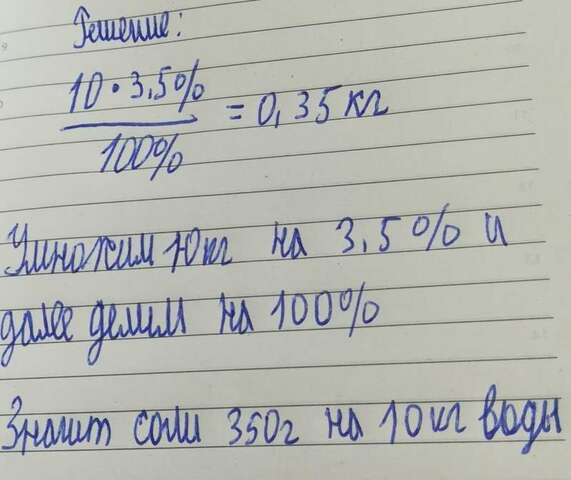 Решение:
10 · 3,5%
= 0,35 кг
100%
Умножим 10 кг на 3,5% и
далее делим на 100%
Значит соли 350г на 10 кг воды